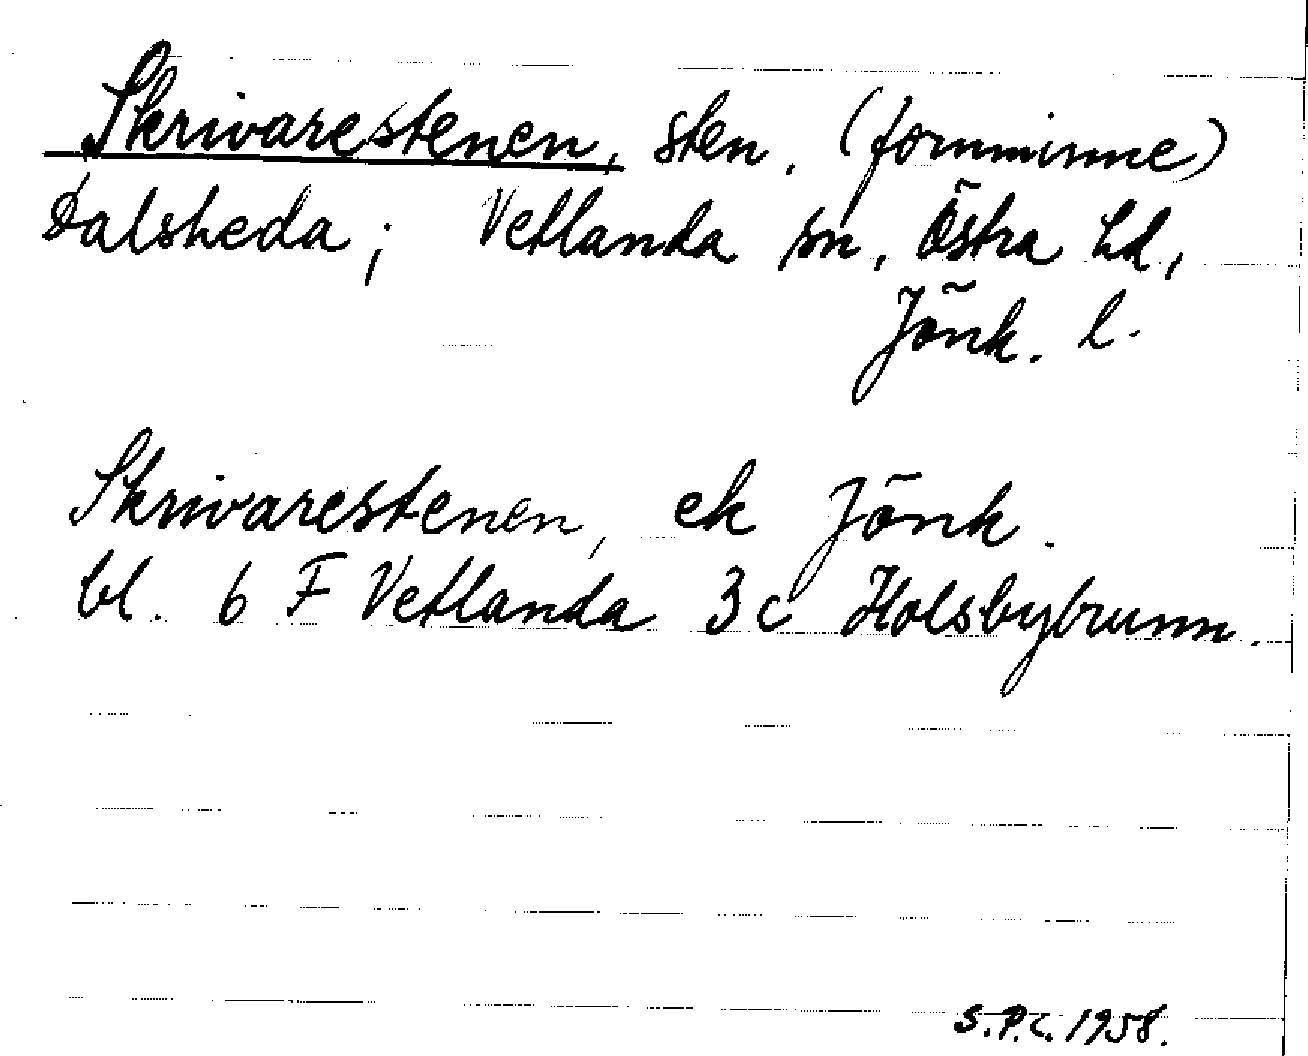 Skrivarestenen, sten. (fornminne)
Dalsheda; Vetlanda sn, Östra hd,
Jönk. l.
Skrivarestenen, ek Jönk.
bl. 6 F Vetlanda 3c Holsbybrunn.
S.P.C. 1958.